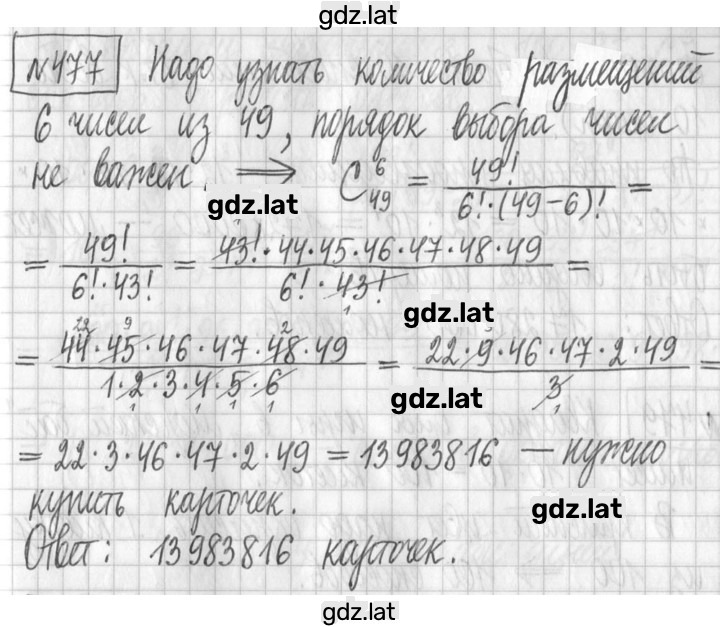 gdz.lat
№477 Надо узнать количество размещений
6 чисел из 49, порядок выбора чисел
не важен. ⟹ C⁶₄₉ = 49! / 6!·(49-6)! =
gdz.lat
= 49! / 6!·43! = 43!·44·45·46·47·48·49 / 6!·43! =
gdz.lat
= 44·45·46·47·48·49 / 1·2·3·4·5·6 = 22·9·46·47·2·49 / 3 =
gdz.lat
= 22·3·46·47·2·49 = 13983816 — нужно
купить карточек.
gdz.lat
Ответ: 13983816 карточек.
gdz.lat